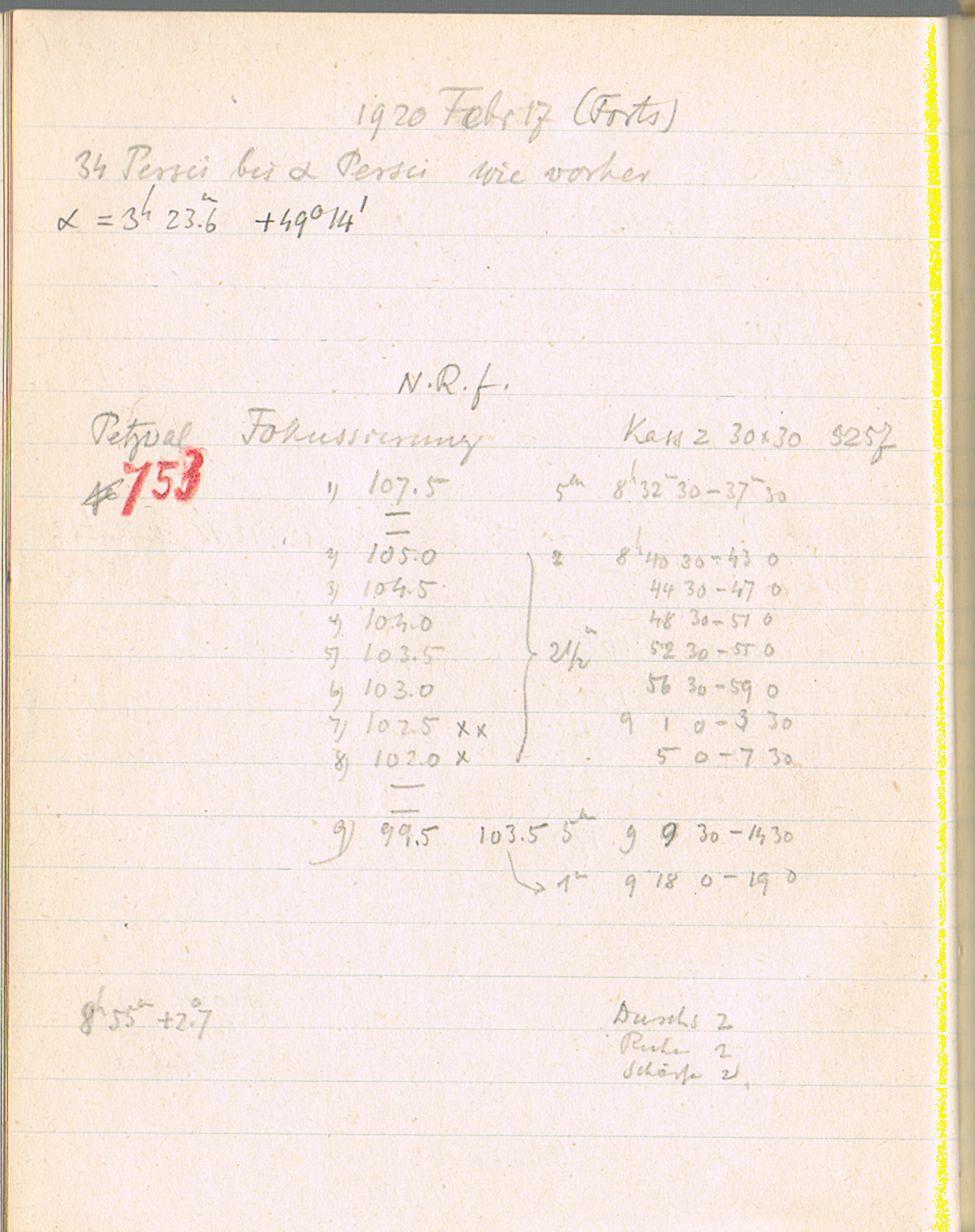 1920 Febr 17 (Forts)
34 Persei bis α Persei wie vorher
α = 3h 23.m6 +49°14'
N.R.f.
Petzval Fokussierung Kass 2 30x30 5257
753 1) 107.5 5m 8h 32m 30 – 37m 30
2) 105.0 2 8h 40 30 – 43 0
3) 104.5 44 30 – 47 0
4) 104.0 48 30 – 51 0
5) 103.5 2 1/2m 52 30 – 55 0
6) 103.0 56 30 – 59 0
7) 102.5 x x 9 1 0 – 3 30
8) 102.0 x 5 0 – 7 30
9) 99.5 103.5 5m 9 9 30 – 14 30
1m 9 18 0 – 19 0
8h 55m +2.°7 Durchs 2
Ruhe 2
Schärfe 2